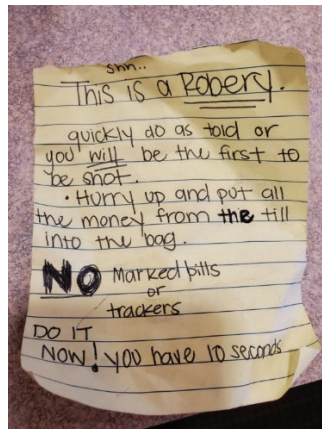 Shh..
This is a Robery.
quickly do as told or
you will be the first to
be shot.
• Hurry up and put all
the money from the till
into the bag.
NO Marked bills
or
trackers
DO IT
NOW! you have 10 seconds